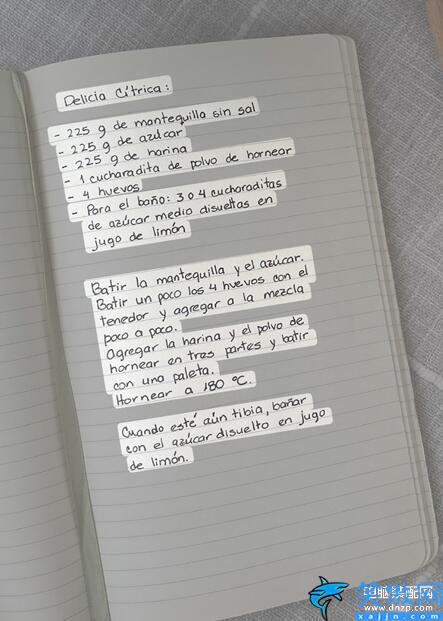 Delicia Cítrica:
- 225 g de mantequilla sin sal
- 225 g de azúcar
- 225 g de harina
- 1 cucharadita de polvo de hornear
- 4 huevos
- Para el baño: 3 o 4 cucharaditas
de azúcar medio disueltas en
jugo de limón
Batir la mantequilla y el azúcar.
Batir un poco los 4 huevos con el
tenedor y agregar a la mezcla
poco a poco.
Agregar la harina y el polvo de
hornear en tres partes y batir
con una paleta.
Hornear a 180 °C.
Cuando esté aún tibia, bañar
con el azúcar disuelto en jugo
de limón.
电脑装配网
www.dnzp.com
xajjn.com